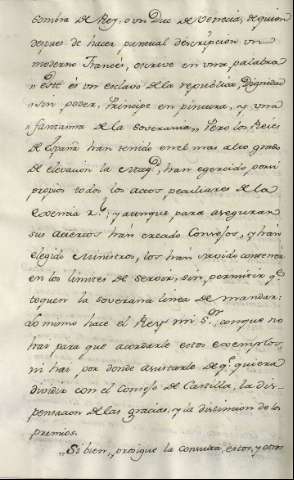 sombra de Rey, o un Dux de Venecia, de quien
depues de hacer puntual descripcion un
moderno Francés, escrive en una palabra
"este és un esclavo de la republica, Dignidad
"sin poder, Principe en pintura, y una
"fantasma de la soverania". Pero los Reies
de España han tenido en el mas alto grado
de elevación la Magd., han egercido por si
propios todos los actos peculiares de la
esencia Rl.; y aunque para asegurar
sus aciertos han creado Consejos, y han
elegido Ministros, los han sabido contener
en los limites de servir, sin permitir qe.
toquen la soverana linea de mandar:
Lo mismo hace el Rey mi Sor., conque no
hai para que acordarle estos exemplos,
ni hai por donde asustarle de qe. quiera
dividir con el Consejo de Castilla, la dis-
pensacion de las gracias, y la distincion de los
premios.
"Si bien, prosigue la consulta, estos, y otros